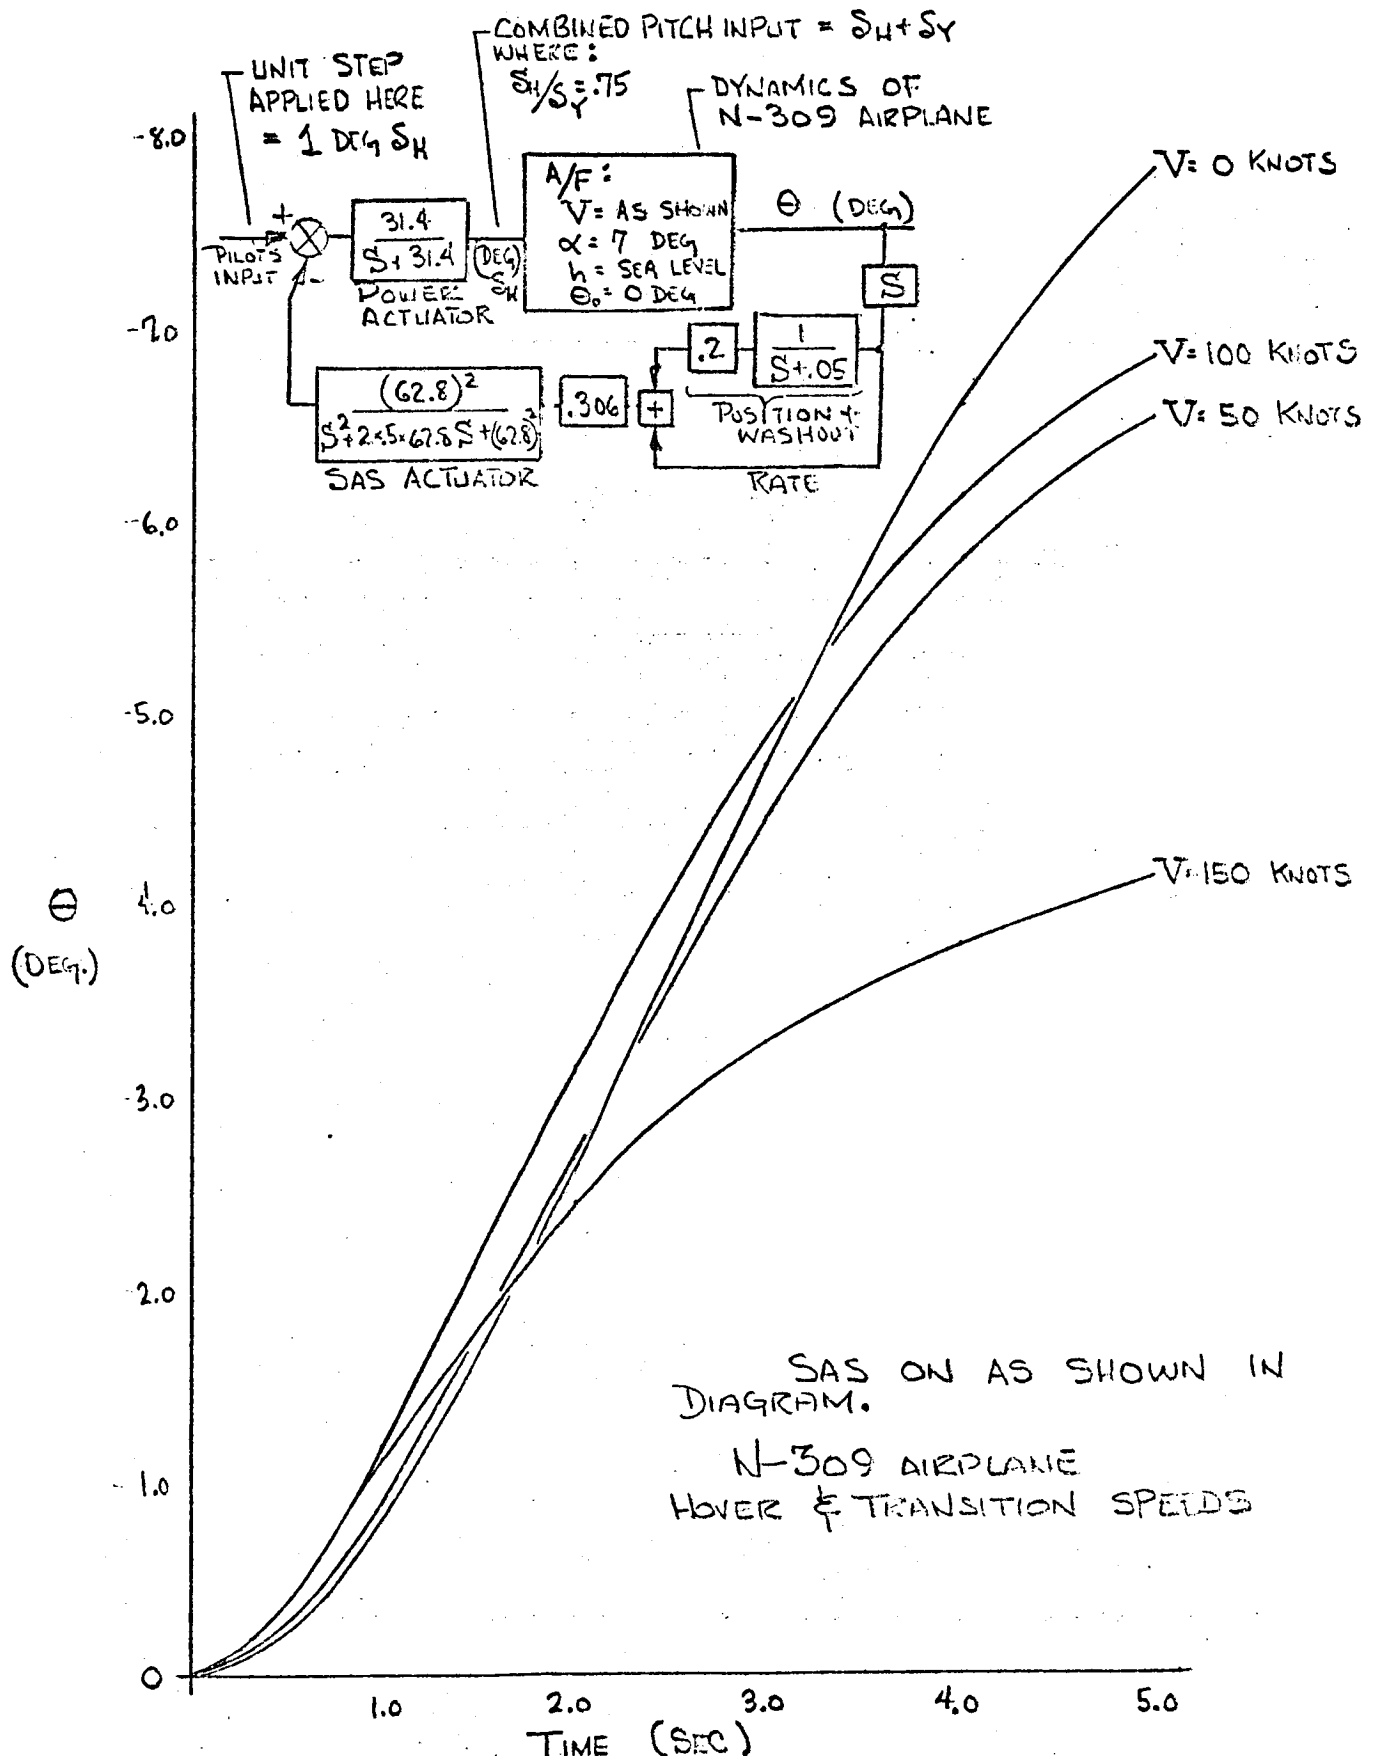 COMBINED PITCH INPUT = δH + δY
WHERE:
δH/δY = .75
UNIT STEP
APPLIED HERE
= 1 DEG δH
DYNAMICS OF
N-309 AIRPLANE
A/F:
V = AS SHOWN
α = 7 DEG
h = SEA LEVEL
θo = 0 DEG
θ (DEG)
+
PILOTS
INPUT
-
31.4
S + 31.4
POWER
ACTUATOR
(DEG)
δH
S
.2
1
S+.05
POSITION +
WASHOUT
+
.306
(62.8)²
S² + 2×.5×62.8 S + (62.8)²
SAS ACTUATOR
RATE
V = 0 KNOTS
V = 100 KNOTS
V = 50 KNOTS
V = 150 KNOTS
-8.0
-7.0
-6.0
-5.0
4.0
-3.0
-2.0
-1.0
0
θ
(DEG.)
SAS ON AS SHOWN IN
DIAGRAM.
N-309 AIRPLANE
HOVER & TRANSITION SPEEDS
1.0 2.0 3.0 4.0 5.0
TIME (SEC)